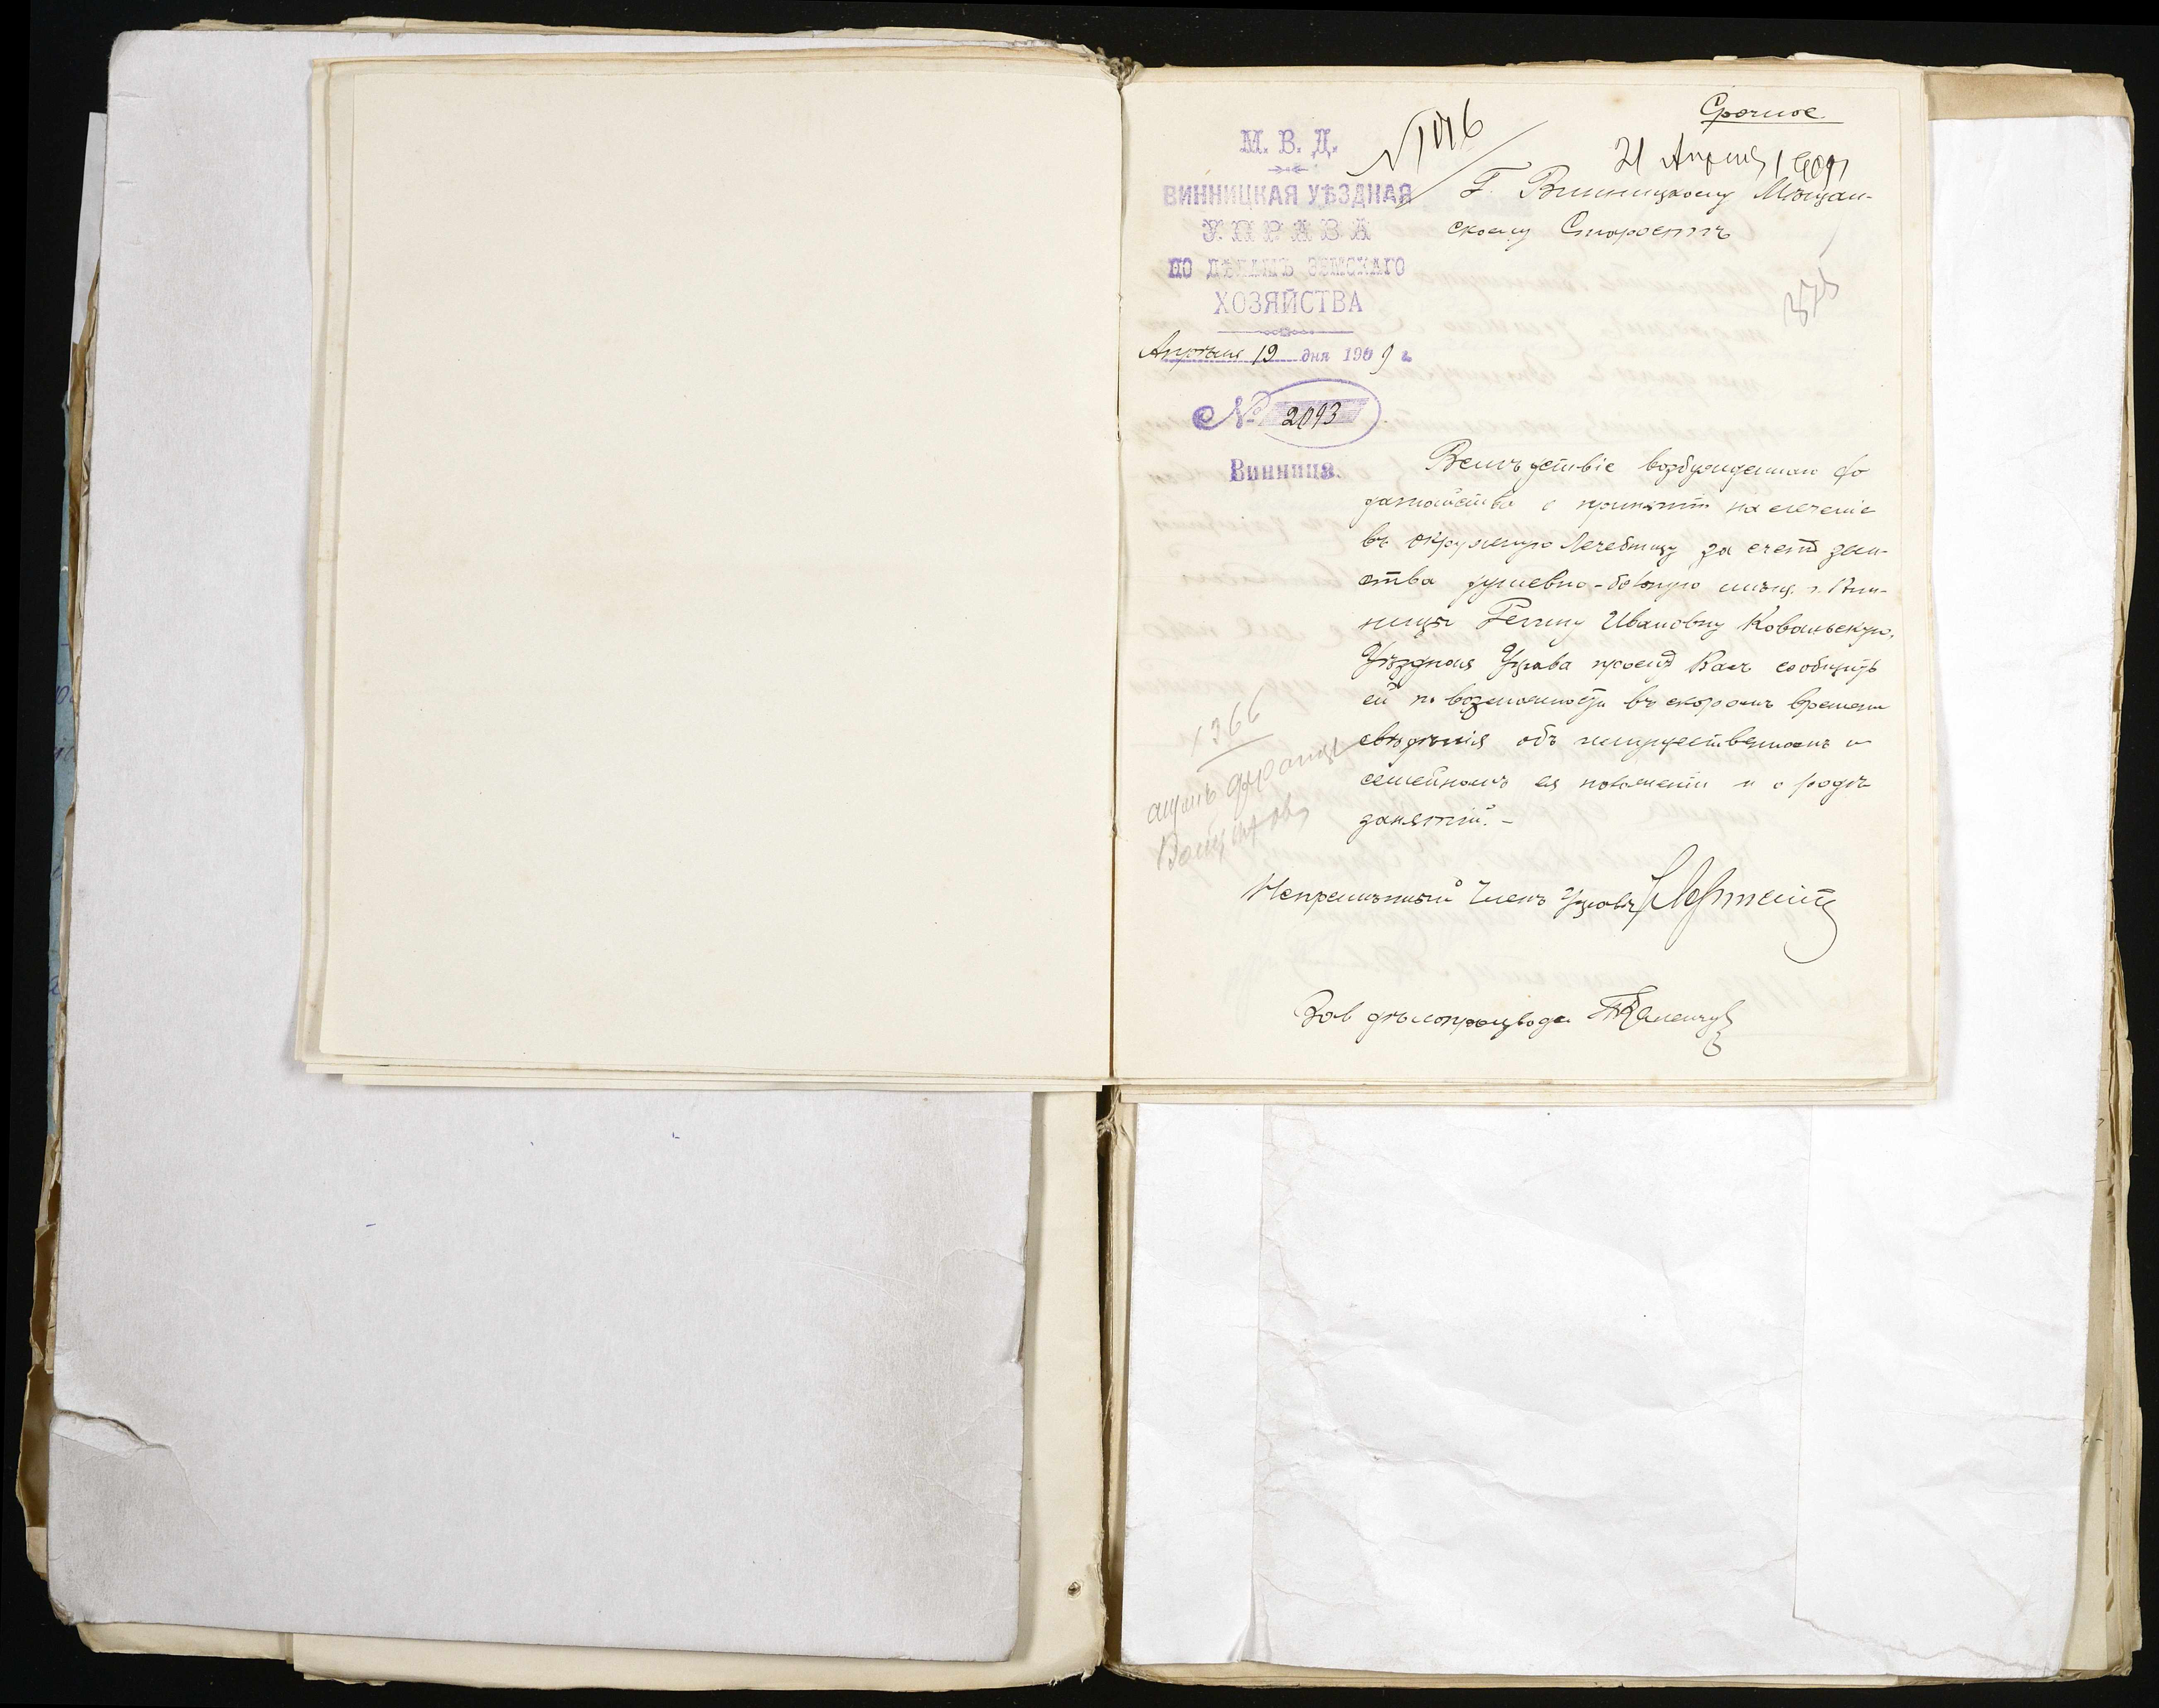 Срочное.
М. В. Д.
ВИННИЦКАЯ УѢЗДНАЯ
УПРАВА
ПО ДѢЛАМЪ ЗЕМСКАГО
ХОЗЯЙСТВА
Апрѣля 19 дня 1909 г.
№ 2093
Винница.
21 Апрѣля 1909
Г. Винницкому Мѣщан-
скому Старостѣ
Вслѣдствіе возбужденнаго хо
датайства о принятіи на леченіе
въ окружную Лечебницу за счетъ зем-
ства душевно-больную мѣщ. г. Вин-
ницы Ивановну Ковальскую,
Уѣздная Управа проситъ Васъ сообщить
ей по возможности въ скоромъ времени
свѣдѣнія объ имущественномъ и
семейномъ ея положеніи и о родѣ
занятій.-
1366
Непремѣнный Членъ Управы
Зав дѣлопроизвод